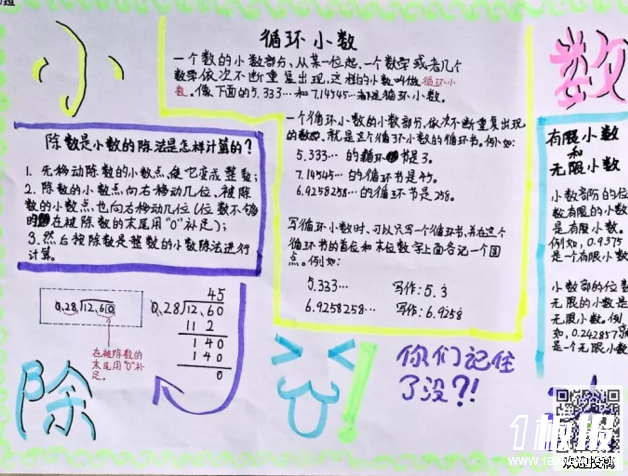 小
数
循环小数
一个数的小数部分，从某一位起，一个数字或者几个
数字依次不断重复出现，这样的小数叫做循环小
数。像下面的5.333…和7.14545…都是循环小数。
一个循环小数的小数部分，依次不断重复出现
的数，就是这个循环小数的循环节。例如：
5.333…的循环节是3。
7.14545…的循环节是45。
6.9258258…的循环节是258。
写循环小数时，可以只写一个循环节，并在这个
循环节的首位和末位数字上面各记一个圆
点。例如：
5.333… 写作：5.3̇
6.9258258… 写作：6.92̇58̇
除数是小数的除法是怎样计算的？
1. 先移动除数的小数点，使它变成整数；
2. 除数的小数点向右移动几位，被除
数的小数点也向右移动几位（位数不够
的在被除数的末尾用“0”补足）；
3. 然后按除数是整数的小数除法进行
计算。
0.28 12.60
在被除数的
末尾用“0”补
足。
45
0.28 12.60
112
140
140
0
除
你们记住
了没？！
有限小数
和
无限小数
小数部份的位
数有限的小数
是有限小数。
例如，0.9375
是一个有限小数
小数部的位数
无限的小数是
无限小数。例
如，0.242857
是一个无限小数
1板报